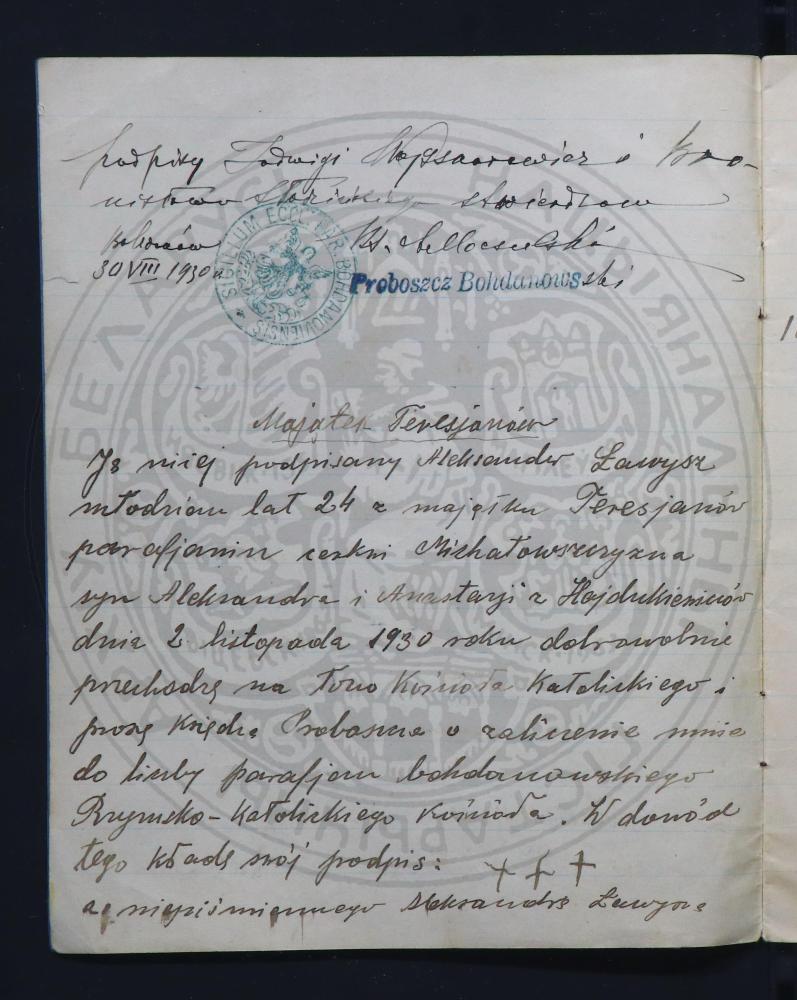 podpisy Jadwigi i Bro-
nisława stwierdzam
30 VIII 1930 r.
Proboszcz Bohdanowski
SIGILLUM ECCL. PAR. BOHDANOVIENSIS
Majątek Teresjanów
Ja niżej podpisany Aleksander Ławysz
młodzian lat 24 z majątku Teresjanów
parafjanin cerkwi Michałowszczyzna
syn Aleksandra i Anastazji z Hajdukiewiczów
dnia 2 listopada 1930 roku dobrowolnie
przechodzę na łono Kościoła Katolickiego i
proszę Księdza Proboszcza o zaliczenie mnie
do liczby parafjan bohdanowskiego
Rzymsko-Katolickiego Kościoła. W dowód
tego kładę swój podpis: + + +
za niepiśmiennego Aleksandra Ławysza